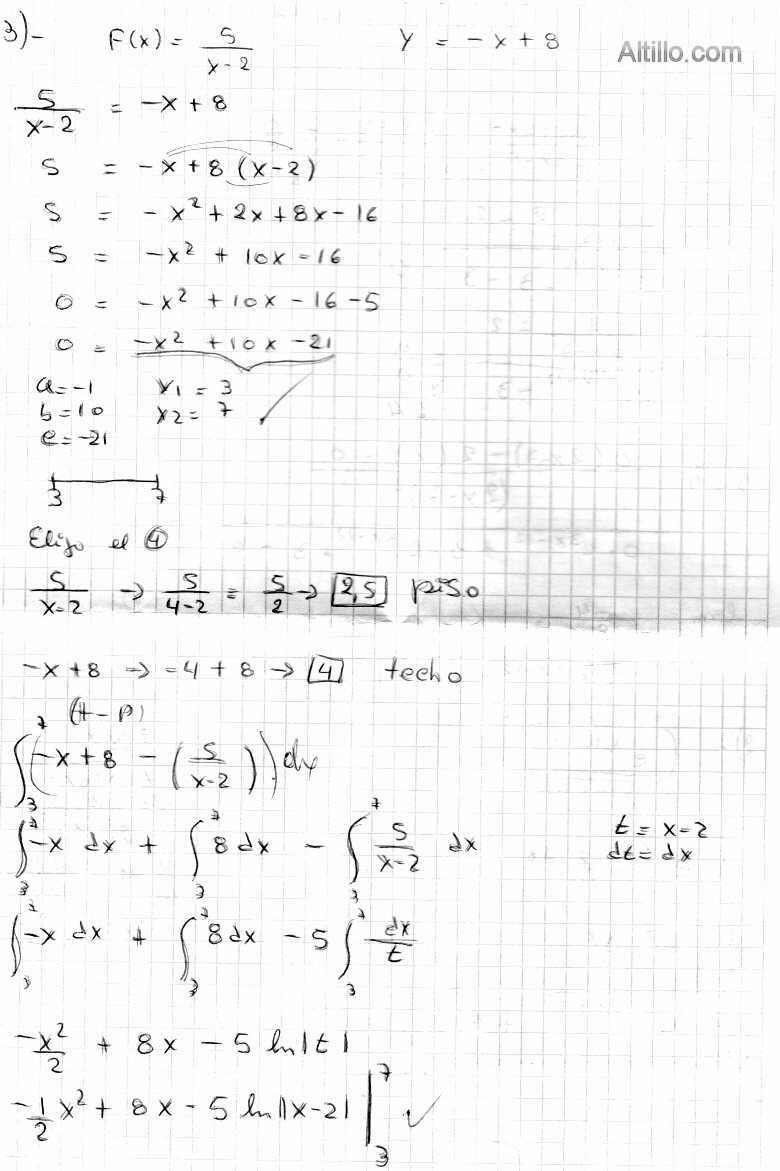 3)- F(x) = 5/(x-2) y = -x+8
Altillo.com
5/(x-2) = -x+8
5 = -x+8 (x-2)
5 = -x² + 2x + 8x - 16
5 = -x² + 10x - 16
0 = -x² + 10x - 16 - 5
0 = -x² + 10x - 21
a=-1 x1 = 3
b=10 x2= 7
c=-21
3 7
Elijo el 4
5/(x-2) → 5/(4-2) = 5/2 → 2,5 piso
-x+8 → -4+8 → 4 techo
(t-p)
∫₃⁷ (-x+8 - (5/(x-2))) dx
∫₃⁷ -x dx + ∫₃⁷ 8 dx - ∫₃⁷ 5/(x-2) dx t = x-2
dt = dx
∫₃⁷ -x dx + ∫₃⁷ 8dx - 5 ∫₃⁷ dx/t
-x²/2 + 8x - 5 ln|t|
-1/2 x² + 8x - 5 ln|x-2| |₃⁷